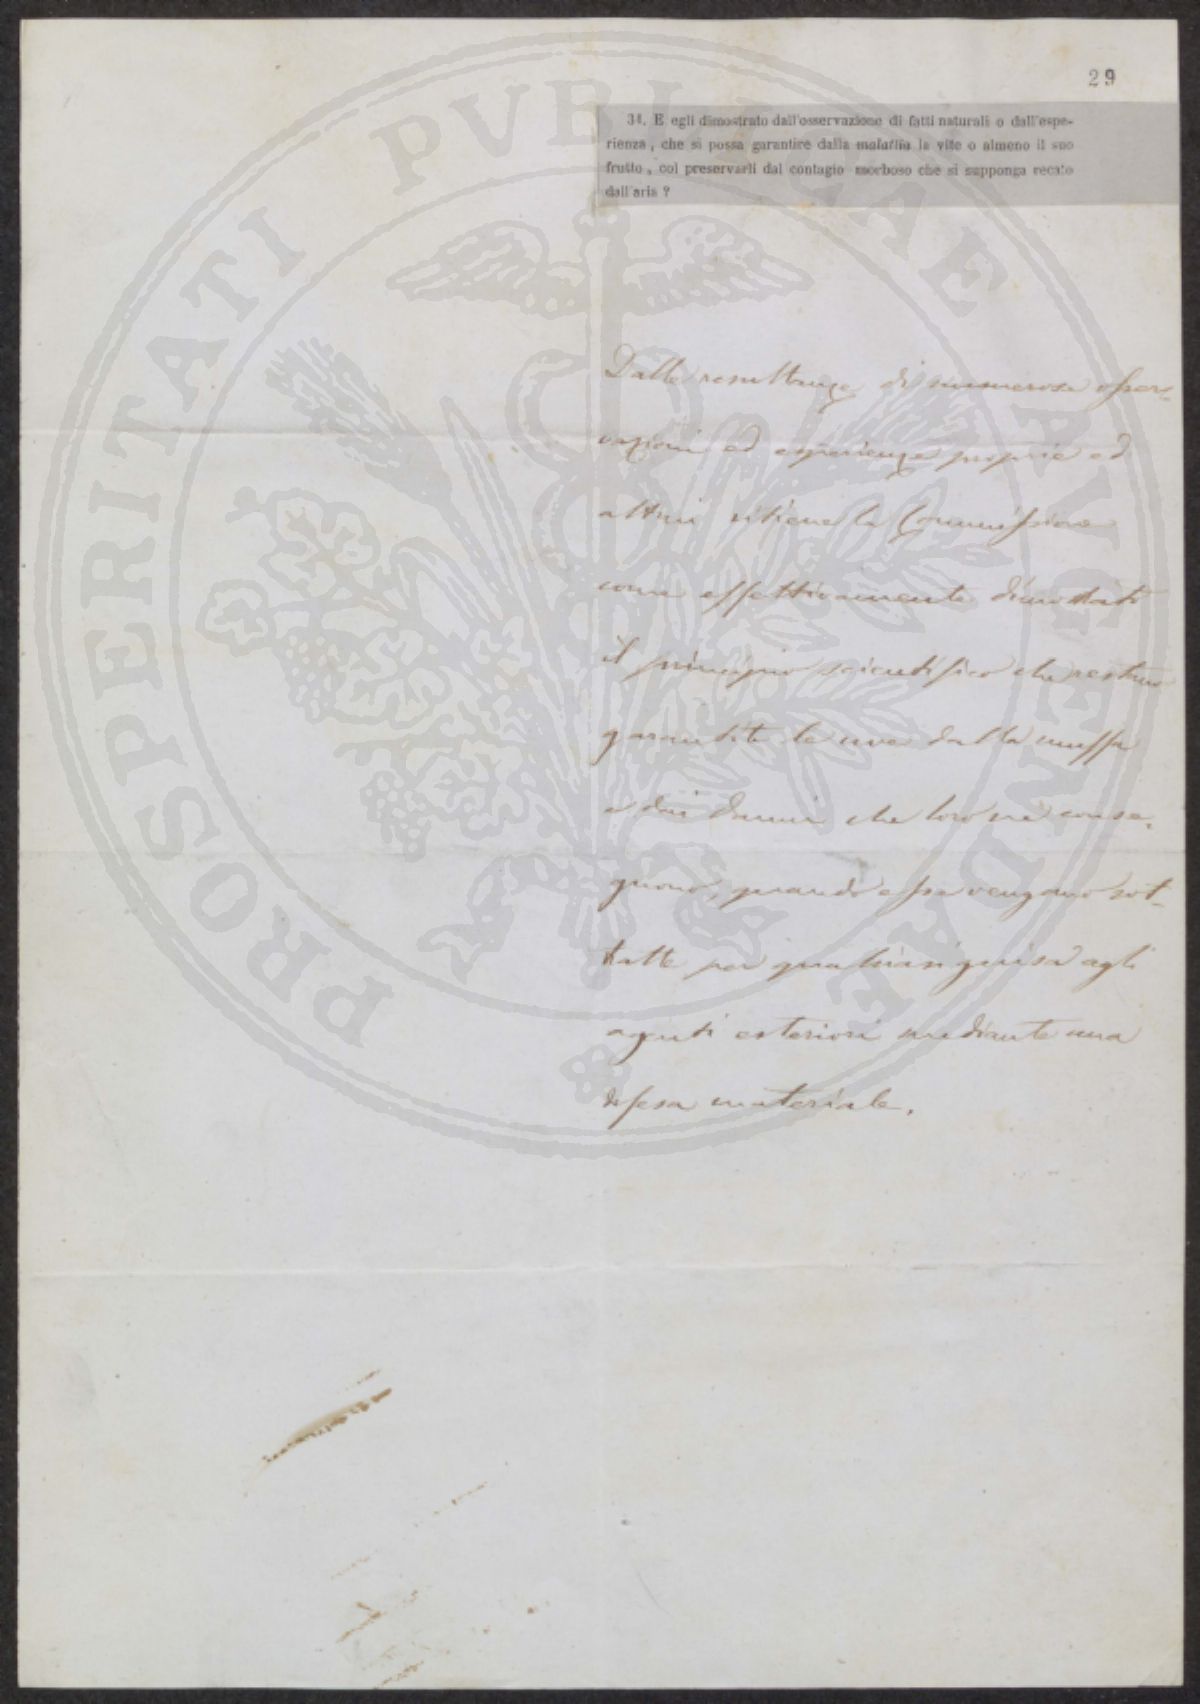 29
31. E egli dimostrato dall'osservazione di fatti naturali o dall'espe-
rienza, che si possa garantire dalla malattia la vite o almeno il suo
frutto, col preservarli dal contagio morboso che si supponga recato
dall'aria ?
Dalle resultanze di numerose osser-
vazioni ed esperienze proprie ed
altrui ritiene la Commissione
come effettivamente dimostrato
il principio scientifico che restano
garantite le uve dalla muffa
e dai danni che loro ne conse-
guono, quando esse vengano sot-
tratte per qualsiasi guisa agli
agenti esteriori mediante una
difesa materiale.
PROSPERITATI PVBLICAE AVGENDAE